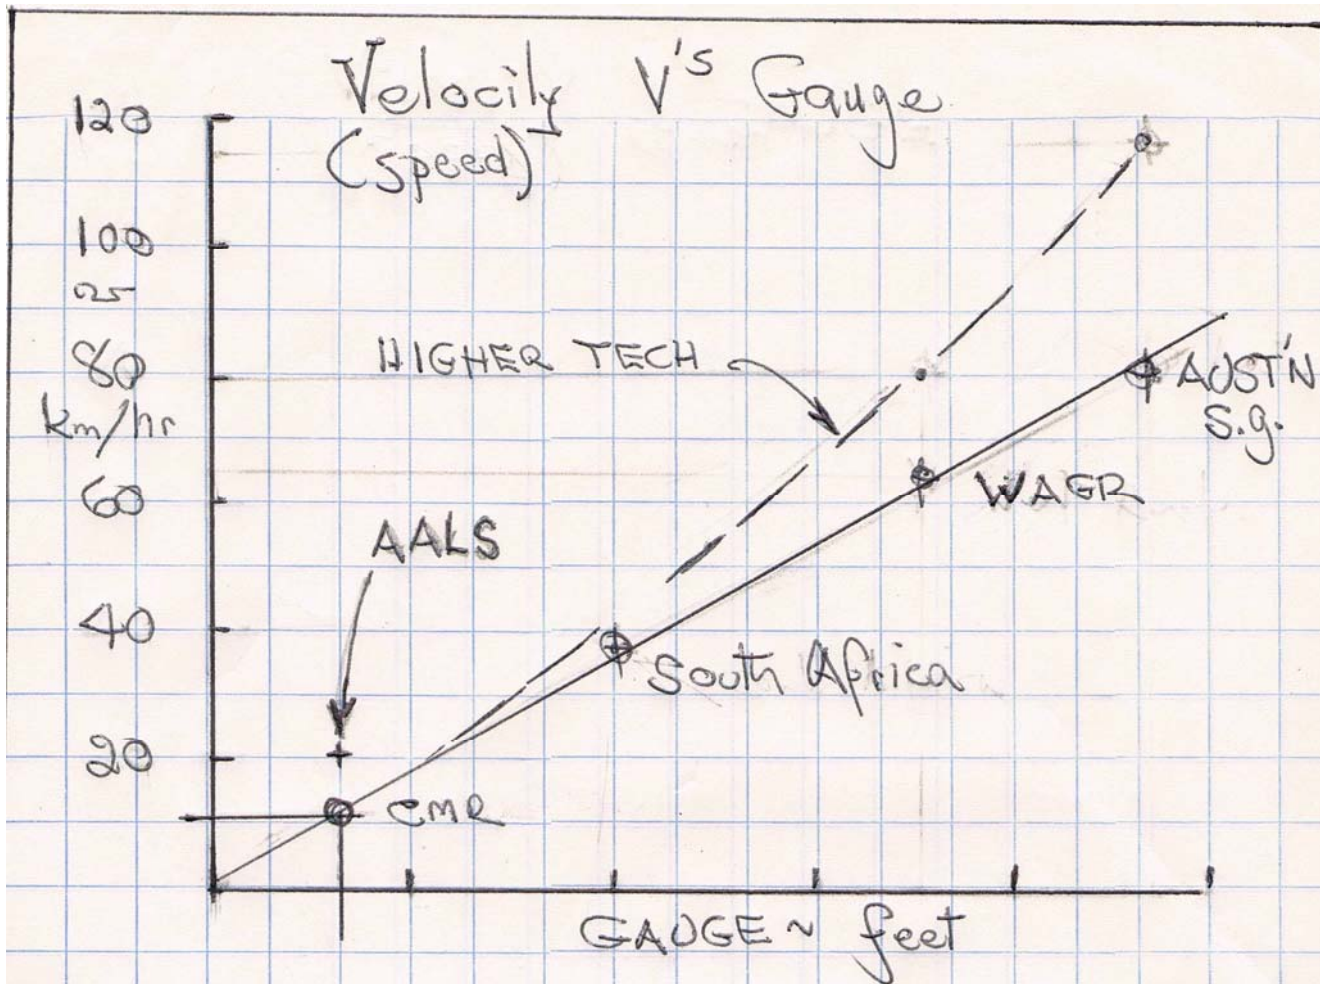 Velocity V's Gauge
(speed)
120
100
25
80
km/hr
60
40
20
HIGHER TECH
AUST'N
s.g.
WAGR
AALS
South Africa
CMR
GAUGE ~ feet